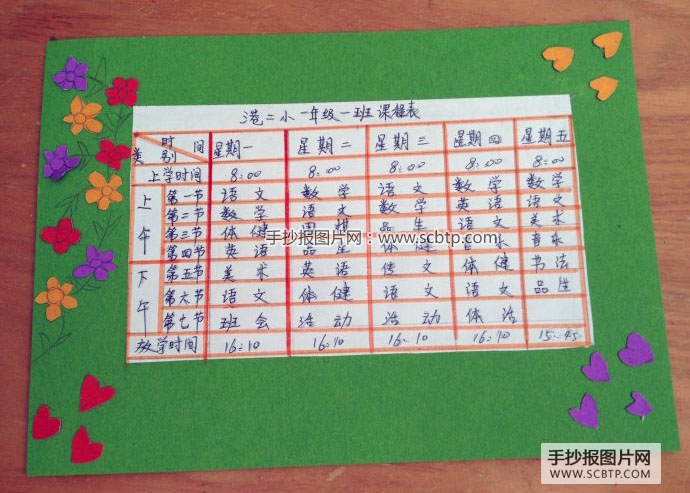 港二小一年级一班课程表
时间 类别 星期一 星期二 星期三 星期四 星期五
上学时间 8:00 8:00 8:00 8:00 8:00
上午 第一节 语文 数学 语文 数学 数学
第二节 数学 语文 数学 英语 语文
第三节 体健 品生 语文 美术
手抄报图片网:www.scbtp.com
第四节 英语 品生 体健 音乐 音乐
下午 第五节 美术 英语 文 体健 书法
第六节 语文 体健 语文 语文 品生
第七节 班会 活动 活动 体活
放学时间 16:10 16:10 16:10 16:10 15:45
手抄报图片网
WWW.SCBTP.COM